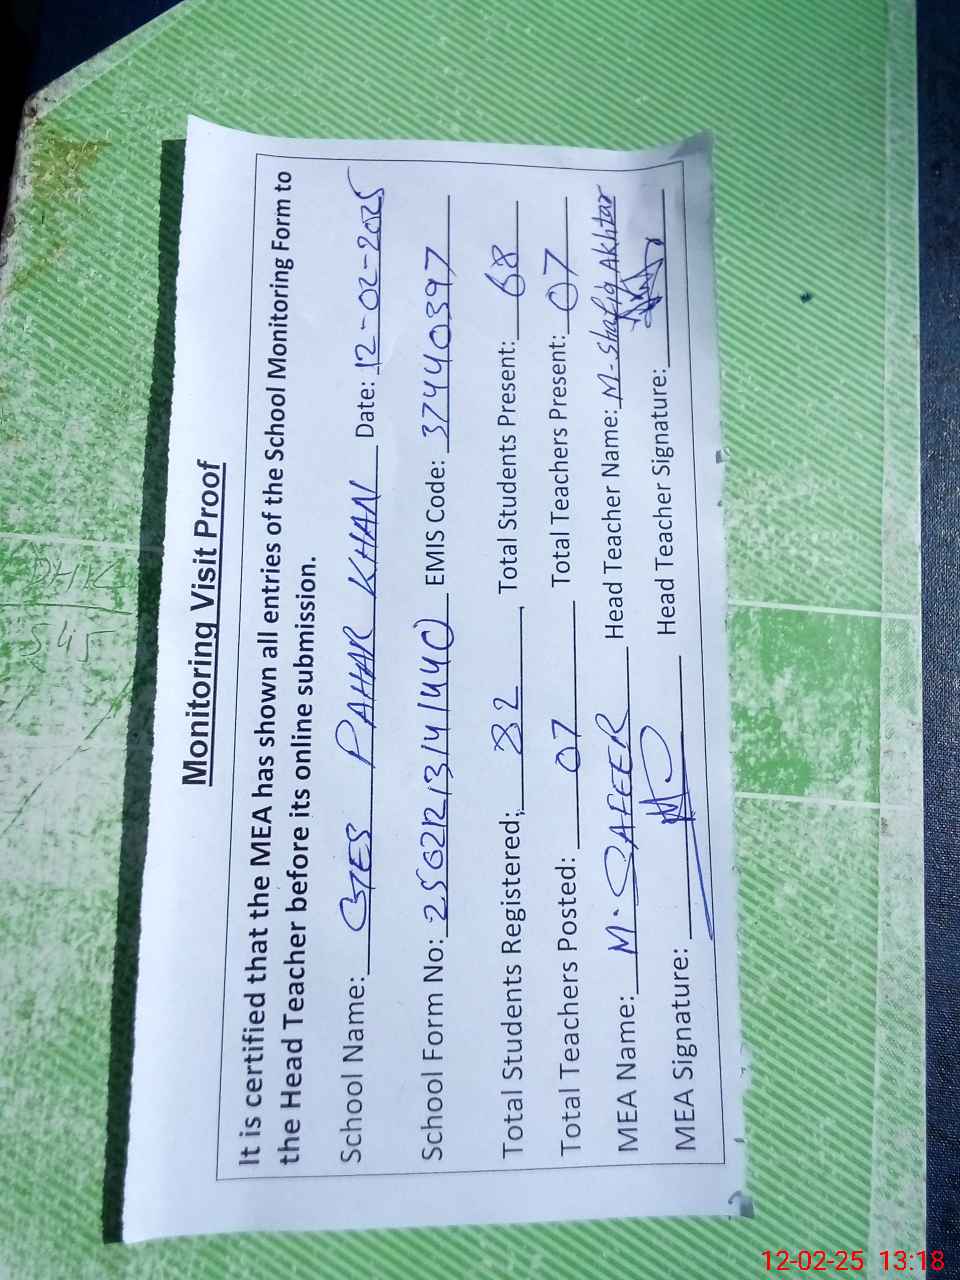 Monitoring Visit Proof
It is certified that the MEA has shown all entries of the School Monitoring Form to
the Head Teacher before its online submission.
School Name: GES PAHAR KHAN Date: 12-02-2025
School Form No: 25G21213141440 EMIS Code: 37440397
Total Students Registered: 82 Total Students Present: 68
Total Teachers Posted: 07 Total Teachers Present: 07
MEA Name: M. SAFEER Head Teacher Name: M-Shafiq Akhtar
MEA Signature: Head Teacher Signature:
545
12-02-25 13:18